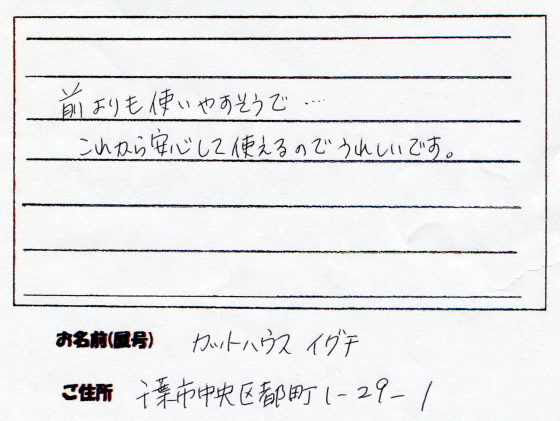 前よりも使いやすそうで…
これから安心して使えるのでうれしいです。
お名前(屋号) カットハウス イグチ
ご住所 千葉市中央区都町1-29-1